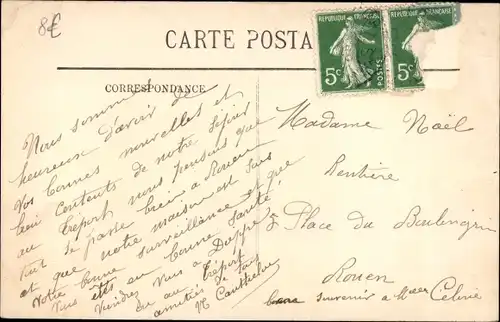 8€
CARTE POSTA
REPUBLIQUE FRANÇAISE
5c POSTES
5c
CORRESPONDANCE
Nous sommes
heureuse d'avoir de
vos bonnes nouvelles et
bien contents de notre séjour
au Tréport nous pensons que
tout se passe bien à Rouen
et que notre maison est sous
votre bonne surveillance et que
vous êtes en bonne santé
Viendrez vous à Dieppe
ou au Tréport
amitiés de tous
Madame Noël
Rentière
Place du Boulingrin
Rouen
souvenir à Céline